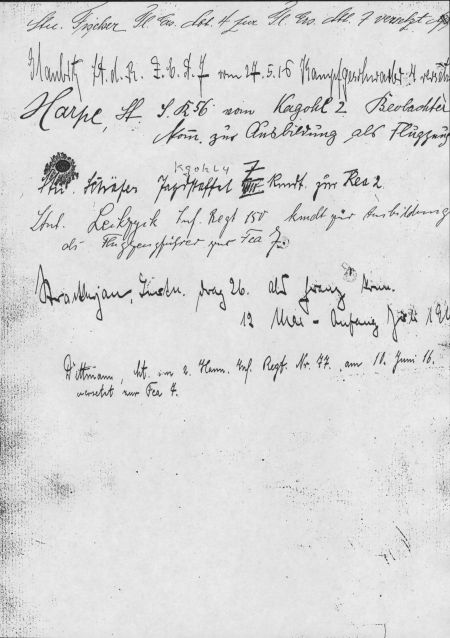 Ltn. Fischer Fl. Ers. Abt. 4 zur Fl. Ers. Abt. 7 versetzt
Haubitz Lt. d. R. F. E. A. 7 vom 27.5.16 Kampfgeschwader 4 versetzt
Harpe, Lt. I. R. 56 vom Kagohl 2 Beobachter
Kom. zur Ausbildung als Flugzeug
Kgohl 4
Ltn. Schäfer Jagdstaffel 7 kmdt. zur Rea 2
Ltnt. Inf. Regt 150 kmdt zur Ausbildung
als Flugzeugführer zur Fea 7.
Drag 26. als Franz kom.
12 Mai - Anfang Juli
Dittmann, Lt. im 2. Hann. Inf. Regt. Nr. 77. am 10. Juni 16.
versetzt zur Fea 7.